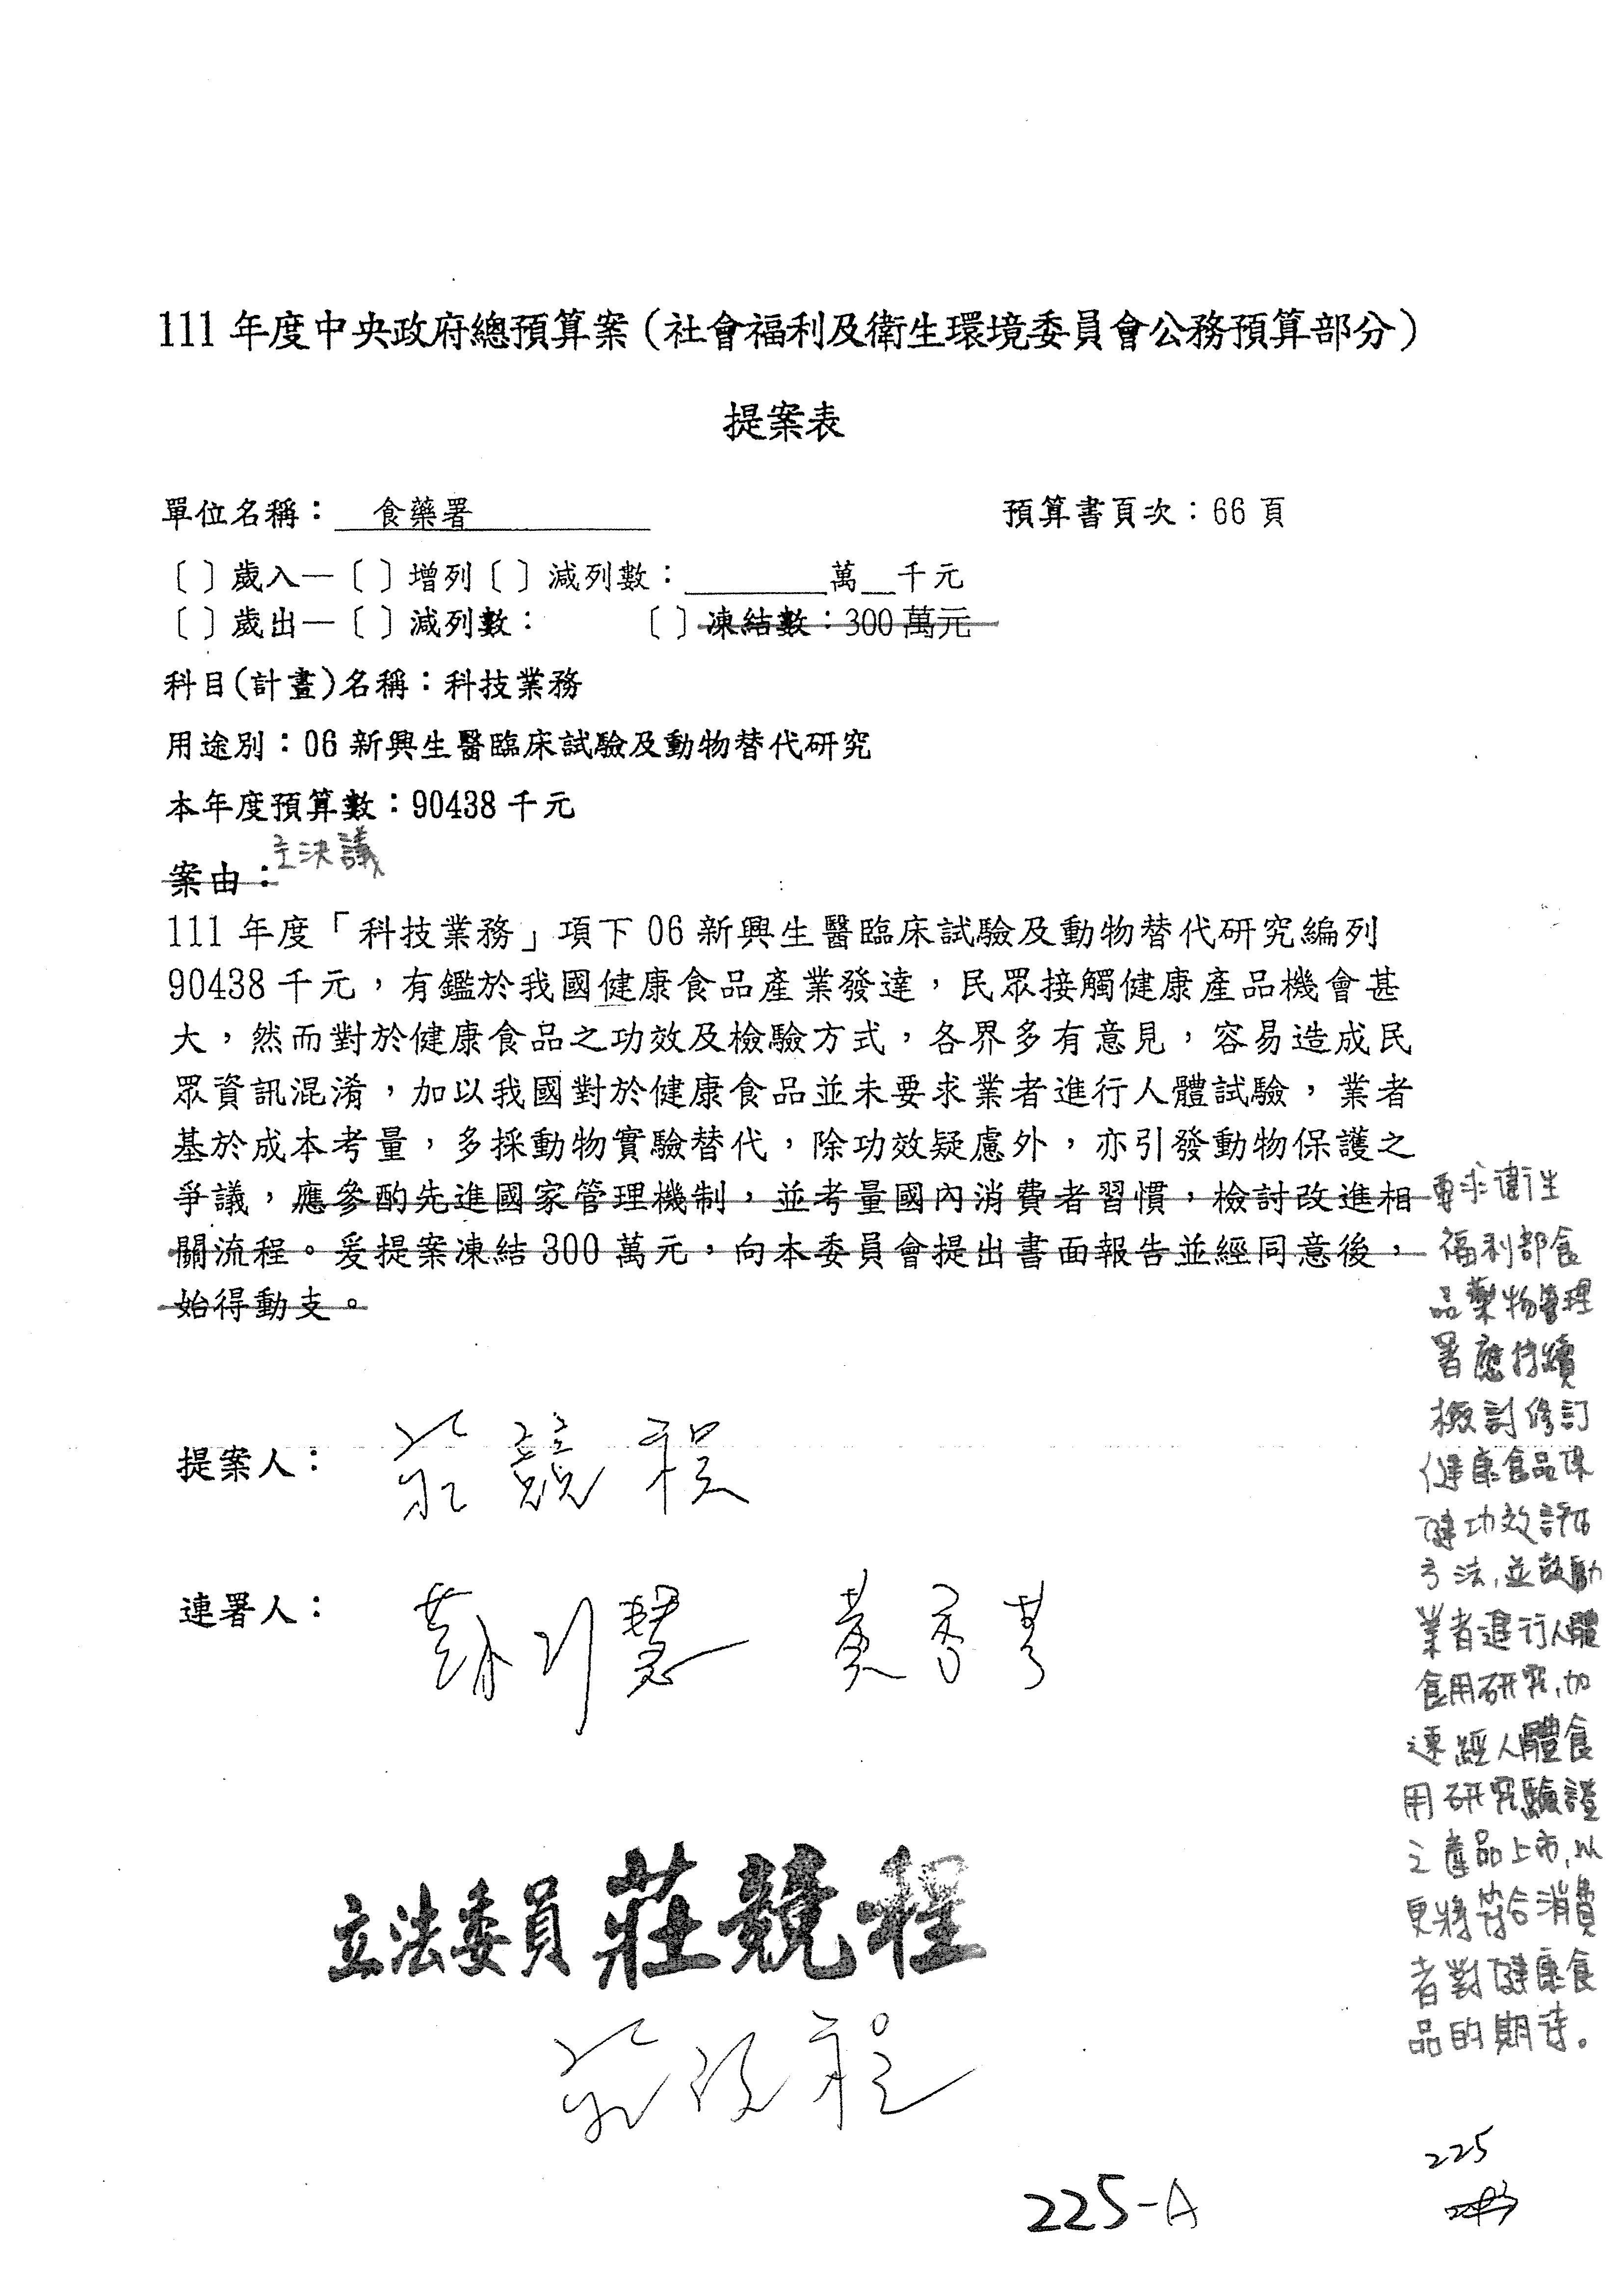 111 年度中央政府總預算案（社會福利及衛生環境委員會公務預算部分）
提案表
單位名稱： 食藥署
預算書頁次：66 頁
〔 〕歲入—〔 〕增列〔 〕減列數：________萬__千元
〔 〕歲出—〔 〕減列數： 〔 〕凍結數：300 萬元
科目(計畫)名稱：科技業務
用途別：06 新興生醫臨床試驗及動物替代研究
本年度預算數：90438 千元
案由：
主決議
111 年度「科技業務」項下 06 新興生醫臨床試驗及動物替代研究編列
90438 千元，有鑑於我國健康食品產業發達，民眾接觸健康產品機會甚
大，然而對於健康食品之功效及檢驗方式，各界多有意見，容易造成民
眾資訊混淆，加以我國對於健康食品並未要求業者進行人體試驗，業者
基於成本考量，多採動物實驗替代，除功效疑慮外，亦引發動物保護之
爭議，應參酌先進國家管理機制，並考量國內消費者習慣，檢討改進相
關流程。爰提案凍結 300 萬元，向本委員會提出書面報告並經同意後，
始得動支。
要求衛生
福利部食
品藥物管理
署應持續
檢討修訂
健康食品保
健功效評估
方法，並鼓勵
業者進行人體
食用研究，加
速經人體食
用研究驗證
之產品上市，以
更將符合消費
者對健康食
品的期待。
提案人： 莊競程
連署人： 蘇巧慧 黃秀芳
立法委員 莊競程
莊競程
225
225-A